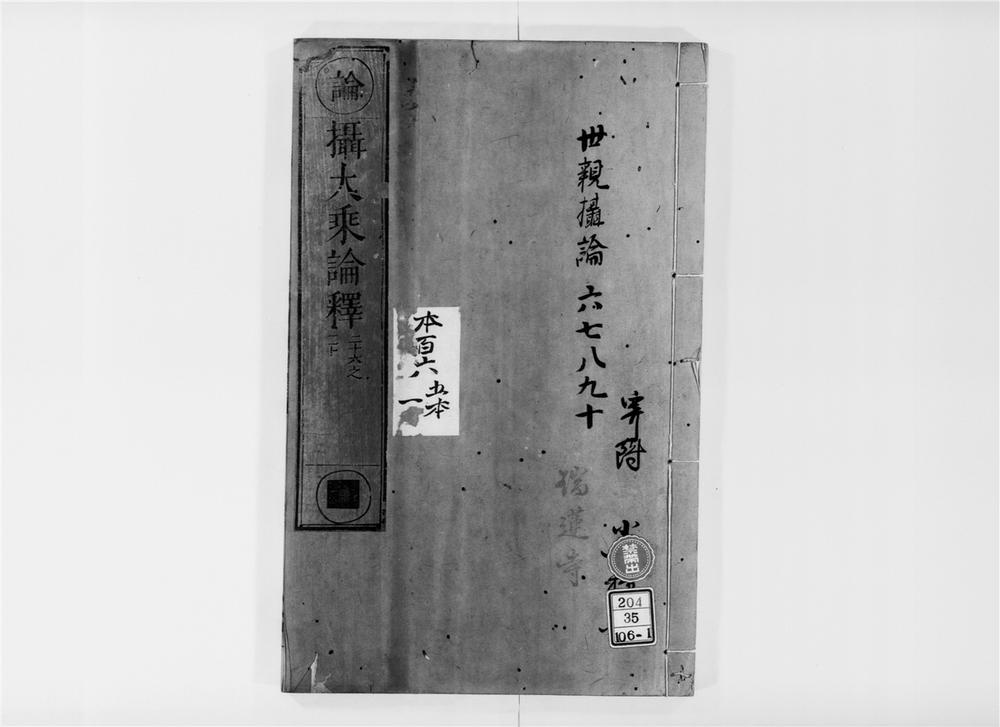 世親攝論 六七八九十
寄附
瑞蓮寺
小
禁帶出
204
35
106-1
本百六
五本
一
論
攝大乘論釋
二十六之
二十